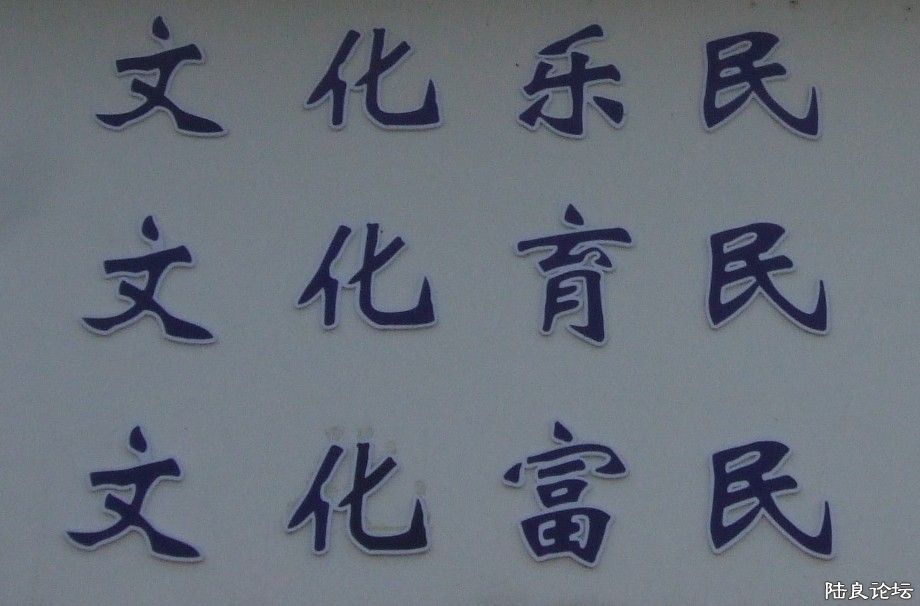 文化乐民
文化育民
文化富民
陆良论坛